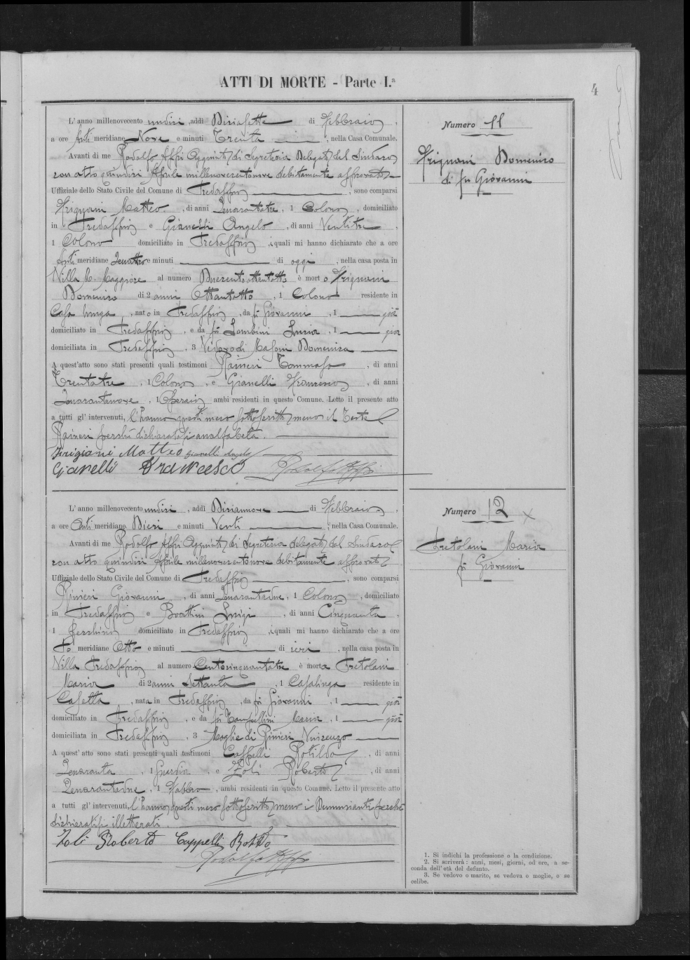 ATTI DI MORTE - Parte I.ª
4
L'anno millenovecento undici, addì Diciasette di Febbraio,
a ore anti meridiane Nove e minuti Trenta, nella Casa Comunale.
Avanti di me Rodolfo Aggiunto di Segretario Delegato del Sindaco
con atto quindici Aprile millenovecentonove debitamente approvato
Ufficiale dello Stato Civile del Comune di Predappio, sono comparsi
Matteo, di anni Quarantatre, 1 Colono, domiciliato
in Predappio, e Gianelli Angelo, di anni
1 Colono domiciliato in Predappio, i quali mi hanno dichiarato che a ore
meridiane Quattro e minuti di oggi, nella casa posta in
Villa al numero Duecentottantotto, è morto Frignani
Domenico di 2 anni Ottantotto, 1 Colono residente in
Casa lunga, nato in Predappio, da fu Giovanni, 1 già
domiciliato in Predappio, e da fu Lombini Lucia, 1 già
domiciliato in Predappio, 3 Vedovo di Masoni Domenica
A quest'atto sono stati presenti quali testimoni Raineri Tommaso, di anni
Trentatre, 1 Colono, e Gianelli Francesco, di anni
Quarantanove, 1, ambi residenti in questo Comune. Letto il presente atto
a tutti gl'intervenuti, l'hanno questi meco sottoscritto meno il Teste
Raineri perché dichiaratosi analfabeta
Matteo
Gianelli Francesco
Numero 11
Frignani Domenico
di fu Giovanni
L'anno millenovecento undici, addì Diciannove di Febbraio,
a ore Anti meridiane Dieci e minuti Venti, nella Casa Comunale.
Avanti di me Rodolfo Aggiunto di Segreteria delegato del Sindaco
con atto quindici Aprile millenovecentonove debitamente approvato
Ufficiale dello Stato Civile del Comune di Predappio, sono comparsi
Pinieri Giovanni, di anni Quarantadue, 1 Colono, domiciliato
in Predappio, e Luigi, di anni Cinquanta
1 domiciliato in Predappio, i quali mi hanno dichiarato che a ore
meridiane Otto e minuti di ieri, nella casa posta in
Villa Predappio al numero Centocinquantatre, è morta Tretolani
Maria di 2 anni Settanta, 1 Casalinga residente in
Casetta, nata in Predappio, da fu Giovanni, 1 già
domiciliato in Predappio, e da fu, 1 già
domiciliato in Predappio, 3 Moglie di Pinieri Vincenzo
A quest'atto sono stati presenti quali testimoni Cappelli Rotildo, di anni
Quaranta, e Zoli Roberto, di anni
Quarantadue, 1 Fabbro, ambi residenti in questo Comune. Letto il presente atto
a tutti gl'intervenuti, l'hanno questi meco sottoscritto meno i Denunzianti perché
dichiaratisi illetterati
Zoli Roberto Cappelli
Numero 12
Maria
fu Giovanni
1. Si indichi la professione o la condizione.
2. Si scriverà: anni, mesi, giorni, od ore, a seconda dell'età del defunto.
3. Se vedovo o marito, se vedova o moglie, e se celibe.